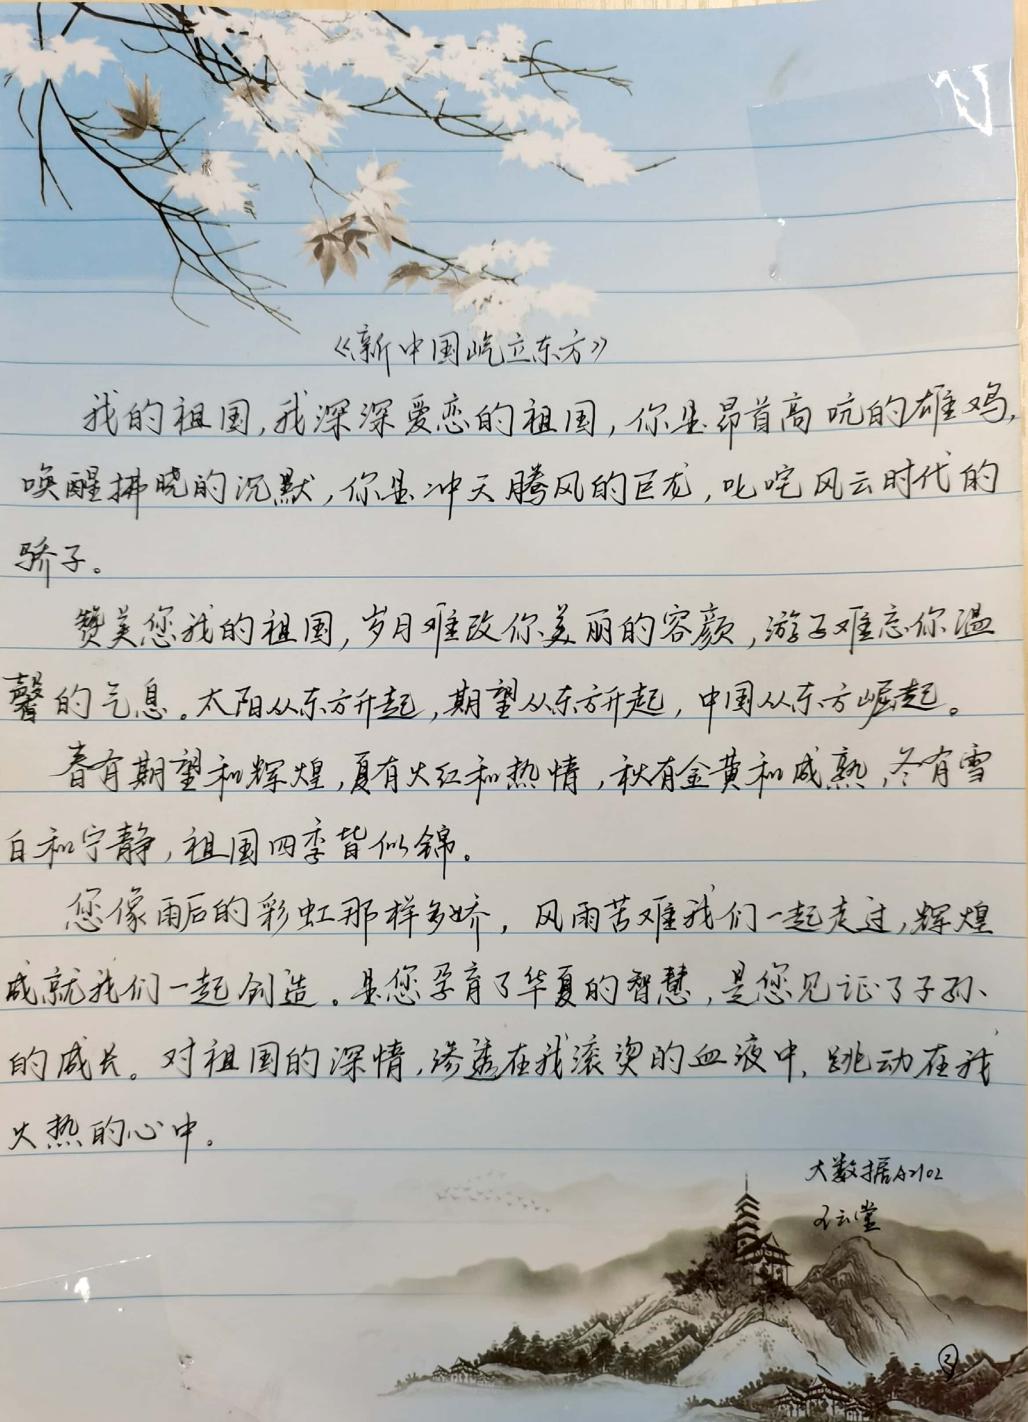 《新中国屹立东方》
我的祖国,我深深爱恋的祖国,你是昂首高吭的雄鸡,
唤醒拂晓的沉默,你是冲天腾风的巨龙,叱咤风云时代的
骄子。
赞美您我的祖国,岁月难改你美丽的容颜,游子难忘你温
馨的气息。太阳从东方升起,期望从东方升起,中国从东方崛起。
春有期望和辉煌,夏有火红和热情,秋有金黄和成熟,冬有雪
白和宁静,祖国四季皆似锦。
您像雨后的彩虹那样多娇,风雨苦难我们一起走过,辉煌
成就我们一起创造。是您孕育了华夏的智慧,是您见证了子孙
的成长。对祖国的深情,渗透在我滚烫的血液中,跳动在我
火热的心中。
大数据A2102
云堂